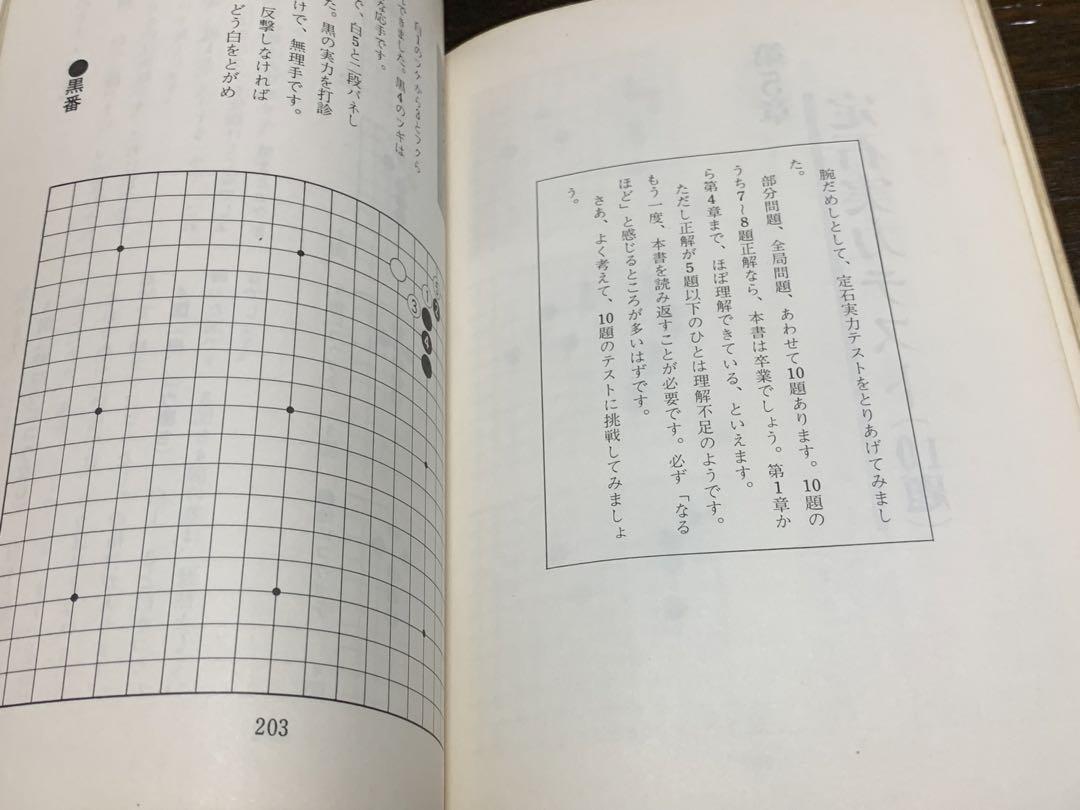 腕だめしとして、定石実力テストをとりあげてみまし
た。
部分問題、全局問題、あわせて10題あります。10題の
うち7〜8題正解なら、本書は卒業でしょう。第1章か
ら第4章まで、ほぼ理解できている、といえます。
ただし正解が5題以下のひとは理解不足のようです。
もう一度、本書を読み返すことが必要です。必ず「なる
ほど」と感じるところが多いはずです。
さあ、よく考えて、10題のテストに挑戦してみましょ
う。
できました。黒4のツギは
な応手です。
で、白5と二段バネし
た。黒の実力を打診
けで、無理手です。
反撃しなければ
どう白をとがめ
●黒番
1
2
3
4
203